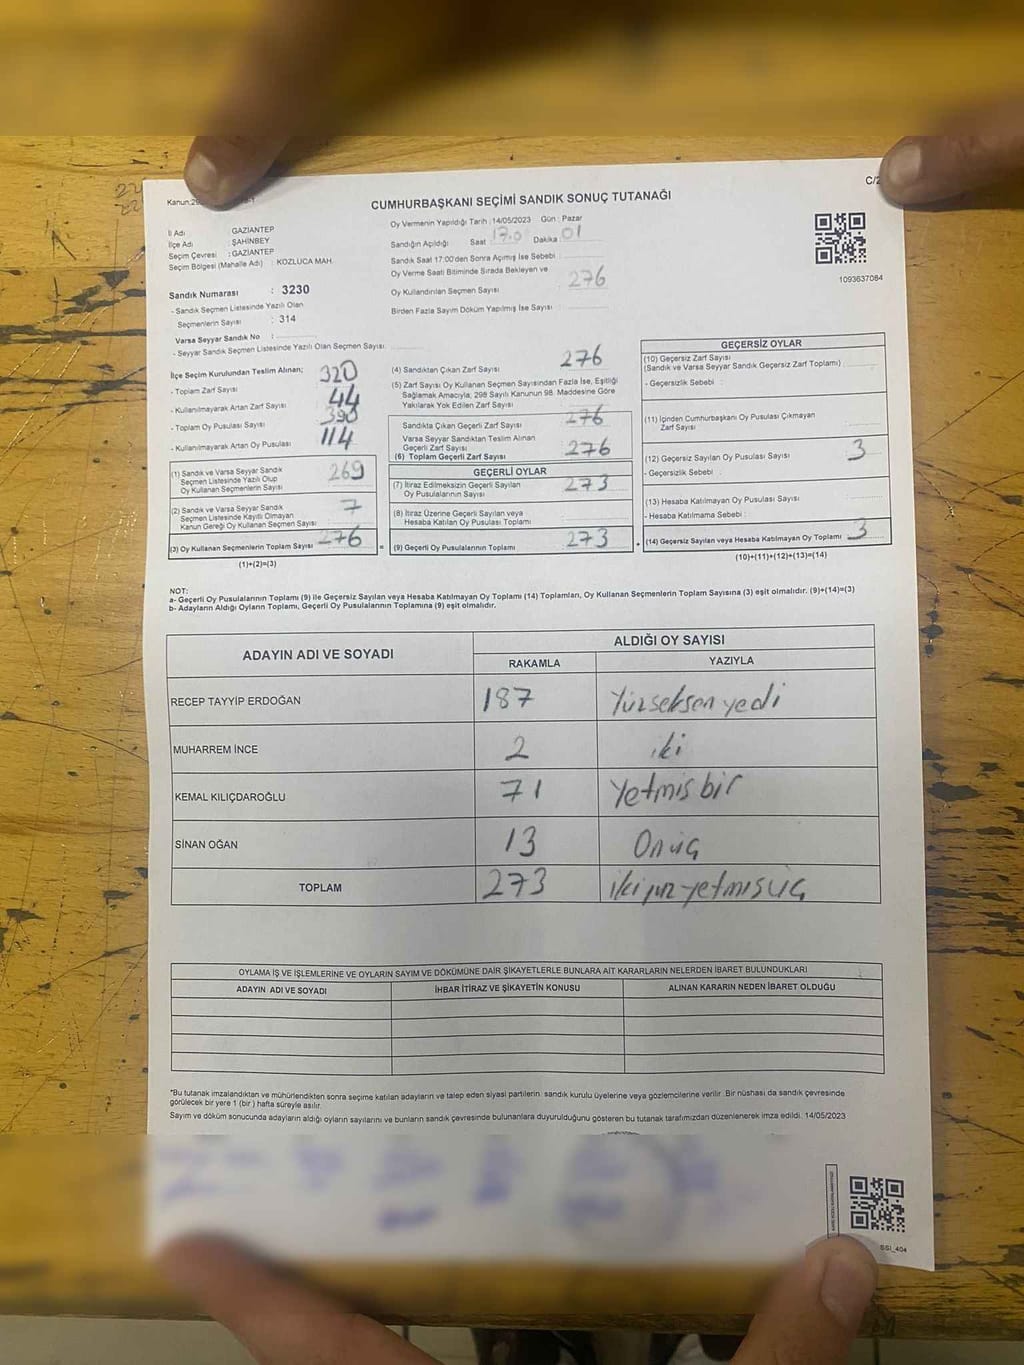 C/2
CUMHURBAŞKANI SEÇİMİ SANDIK SONUÇ TUTANAĞI
İl Adı GAZİANTEP
İlçe Adı : ŞAHİNBEY
Seçim Çevresi : GAZİANTEP
Seçim Bölgesi (Mahalle Adı) : KOZLUCA MAH.
Sandık Numarası : 3230
- Sandık Seçmen Listesinde Yazılı Olan
Seçmenlerin Sayısı : 314
Varsa Seyyar Sandık No :
- Seyyar Sandık Seçmen Listesinde Yazılı Olan Seçmen Sayısı
Oy Vermenin Yapıldığı Tarih : 14/05/2023 Gün : Pazar
Sandığın Açıldığı Saat 17.0 Dakika 01
Sandık Saat 17:00'den Sonra Açımış İse Sebebi
Oy Verme Saati Bitiminde Sırada Bekleyen ve
Oy Kullandırılan Seçmen Sayısı 276
Birden Fazla Sayım Döküm Yapılmış İse Sayısı
1093637084
İlçe Seçim Kurulundan Teslim Alınan;
- Toplam Zarf Sayısı 320
- Kullanılmayarak Artan Zarf Sayısı 44
- Toplam Oy Pusulası Sayısı 390
- Kullanılmayarak Artan Oy Pusulası 114
(1) Sandık ve Varsa Seyyar Sandık
Seçmen Listesinde Yazılı Olup
Oy Kullanan Seçmenlerin Sayısı 269
(2) Sandık ve Varsa Seyyar Sandık
Seçmen Listesinde Kayıtlı Olmayan
Kanun Gereği Oy Kullanan Seçmen Sayısı 7
(3) Oy Kullanan Seçmenlerin Toplam Sayısı 276
(1)+(2)=(3)
(4) Sandıktan Çıkan Zarf Sayısı 276
(5) Zarf Sayısı Oy Kullanan Seçmen Sayısından Fazla İse, Eşitliği
Sağlamak Amacıyla; 298 Sayılı Kanunun 98. Maddesine Göre
Yakılarak Yok Edilen Zarf Sayısı
Sandıkta Çıkan Geçerli Zarf Sayısı 276
Varsa Seyyar Sandıktan Teslim Alınan
Geçerli Zarf Sayısı
(6) Toplam Geçerli Zarf Sayısı 276
GEÇERLİ OYLAR
(7) İtiraz Edilmeksizin Geçerli Sayılan
Oy Pusulalarının Sayısı 273
(8) İtiraz Üzerine Geçerli Sayılan veya
Hesaba Katılan Oy Pusulası Toplamı
(9) Geçerli Oy Pusulalarının Toplamı 273
GEÇERSİZ OYLAR
(10) Geçersiz Zarf Sayısı
(Sandık ve Varsa Seyyar Sandık Geçersiz Zarf Toplamı)
- Geçersizlik Sebebi :
(11) İçinden Cumhurbaşkanı Oy Pusulası Çıkmayan
Zarf Sayısı
(12) Geçersiz Sayılan Oy Pusulası Sayısı 3
- Geçersizlik Sebebi :
(13) Hesaba Katılmayan Oy Pusulası Sayısı
- Hesaba Katılmama Sebebi :
(14) Geçersiz Sayılan veya Hesaba Katılmayan Oy Toplamı 3
(10)+(11)+(12)+(13)=(14)
NOT:
a- Geçerli Oy Pusulalarının Toplamı (9) ile Geçersiz Sayılan veya Hesaba Katılmayan Oy Toplamı (14) Toplamları, Oy Kullanan Seçmenlerin Toplam Sayısına (3) eşit olmalıdır. (9)+(14)=(3)
b- Adayların Aldığı Oyların Toplamı, Geçerli Oy Pusulalarının Toplamına (9) eşit olmalıdır.
ADAYIN ADI VE SOYADI ALDIĞI OY SAYISI
RAKAMLA YAZIYLA
RECEP TAYYİP ERDOĞAN 187 Yüzseksen yedi
MUHARREM İNCE 2 iki
KEMAL KILIÇDAROĞLU 71 Yetmiş bir
SİNAN OĞAN 13 Onüç
TOPLAM 273 ikiyüz yetmişüç
OYLAMA İŞ VE İŞLEMLERİNE VE OYLARIN SAYIM VE DÖKÜMÜNE DAİR ŞİKAYETLERLE BUNLARA AİT KARARLARIN NELERDEN İBARET BULUNDUKLARI
ADAYIN ADI VE SOYADI İHBAR İTİRAZ VE ŞİKAYETİN KONUSU ALINAN KARARIN NEDEN İBARET OLDUĞU
*Bu tutanak imzalandıktan ve mühürlendikten sonra seçime katılan adayların ve talep eden siyasi partilerin sandık kurulu üyelerine veya gözlemcilerine verilir. Bir nüshası da sandık çevresinde
görülecek bir yere 1 (bir) hafta süreyle asılır.
Sayım ve döküm sonucunda adayların aldığı oyların sayılarını ve bunların sandık çevresinde bulunanlara duyurulduğunu gösteren bu tutanak tarafımızdan düzenlenerek imza edildi. 14/05/2023
SSI_404